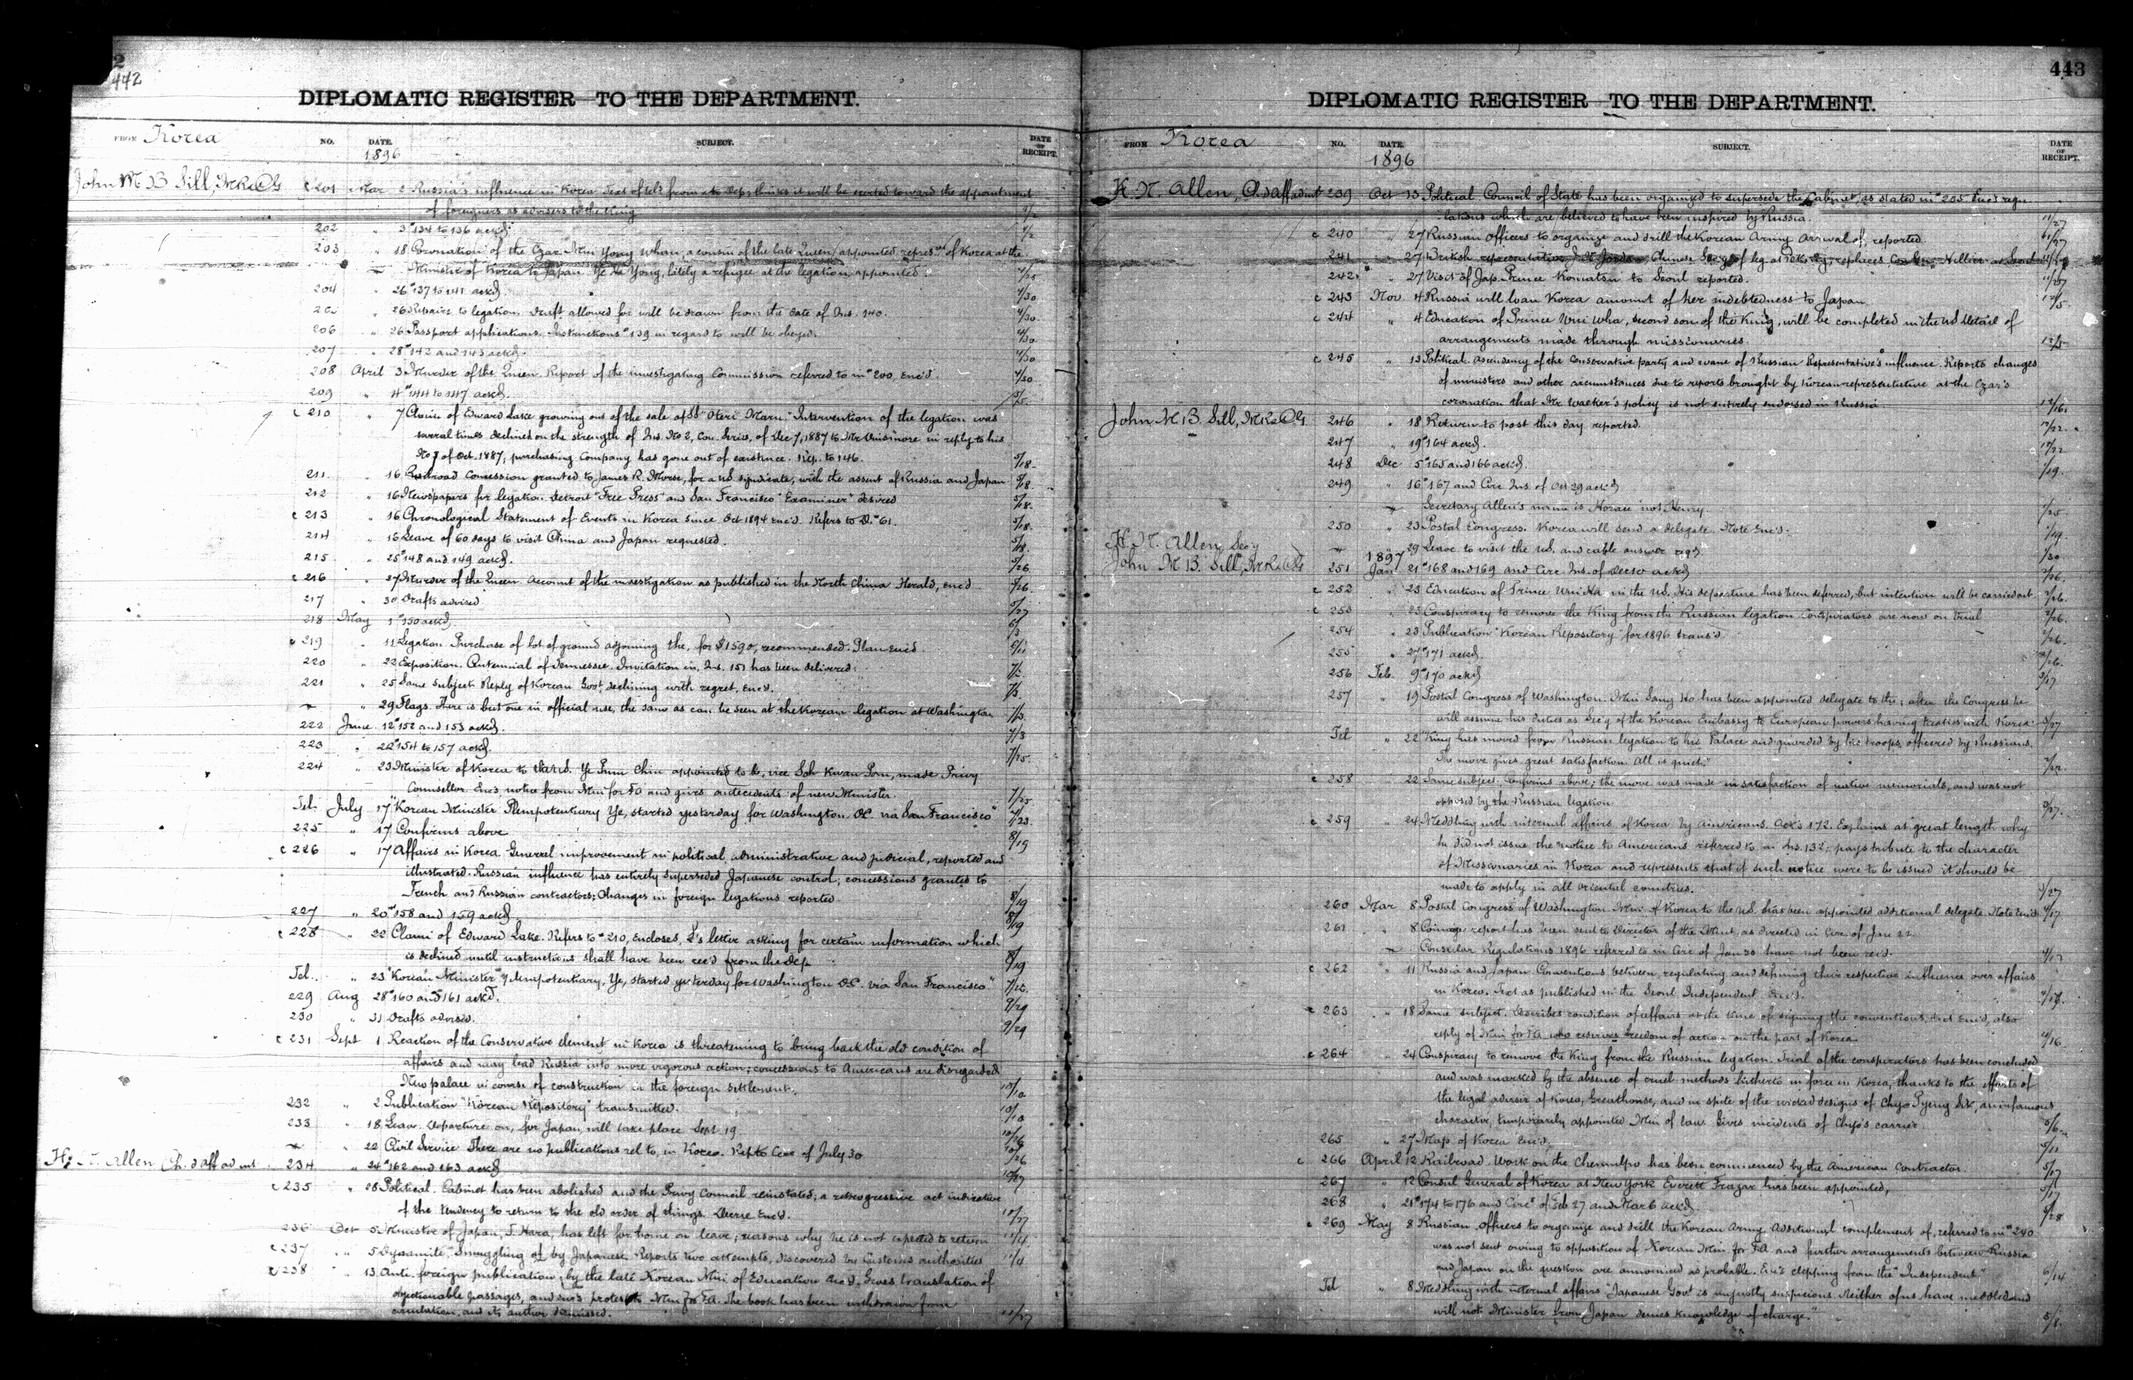 442
DIPLOMATIC REGISTER TO THE DEPARTMENT.
FROM Korea NO. DATE. SUBJECT. DATE OF RECEIPT.
1896
John M B Sill, M R & C G c 201 Mar 2 Russia's influence in Korea. Text of tel. from Dep; thinks it will be exerted toward the appointment
of foreigners as advisers to the King
202 " 3 #134 to 136 ackd
203 " 18 Coronation of the Czar. Min Yong Whan, a cousin of the late Queen, appointed of Korea at the
— Minister of Korea to Japan. Ye Ha Yong, lately a refugee at the legation appointed
204 " 26 #137 to 141 ackd 4/30
" 26 Repairs to legation. Draft allowed for will be drawn from the date of Ins. 140. 4/30
206 " 26 Passport applications. Instructions #139 in regard to will be obeyed. 4/30
207 " 28 #142 and 143 ackd 4/30
208 April 3 Murder of the Queen. Report of the investigating Commission referred to in #200, Enc'd. 4/30
209 " 4 #144 to 147 ackd
c 210 " 7 Claim of Edward Lake growing out of the sale of SS "Oteri Maru." Intervention of the legation was
several times declined on the strength of Ins. No 2, Con. Series, of Dec 7, 1887 to Mr Dinsmore in reply to his
No 7 of Oct. 1887; purchasing Company has gone out of existence. Rep. to 146. 5/18
211 " 16 Railroad Concession granted to James R. Morse, for a US syndicate, with the assent of Russia and Japan 5/18
212 " 16 Newspapers for legation. Detroit "Free Press" and San Francisco "Examiner" desired 5/18
c 213 " 16 Chronological Statement of Events in Korea since Oct 1894 enc'd. Refers to D. #61. 5/18
214 " 16 Leave of 60 days to visit China and Japan requested. 5/18
215 " 25 #148 and 149 ackd. 5/26
c 216 " 27 Murder of the Queen. Account of the investigation as published in the North China Herald, enc'd 5/26
217 " 30 Drafts advised 5/27
218 May 1 #150 ackd 6/3
219 " 11 Legation. Purchase of lot of ground adjoining the, for $1590, recommended. Plan enc'd 6/11
220 " 22 Exposition. Centennial of Tennessee. Invitation in, Ins. 151 has been delivered.
221 " 25 Same subject. Reply of Korean Govt, declining with regret, enc'd. 7/3
— " 29 Flags. There is but one in official use, the same as can be seen at the Korean legation at Washington 7/3
222 June 12 #152 and 153 ackd. 7/3
223 " 22 #154 to 157 ackd. 7/25
224 " 23 Minister of Korea to the US. Ye Pum Chin appointed to be, vice Soh Kwan Pom, made Privy
Counsellor. Enc's notice from Min for FA and gives antecedents of new Minister. 7/25
Tel. July 17 "Korean Minister Plenipotentiary Ye, started yesterday for Washington DC via San Francisco" 7/23
225 " 17 Confirms above 8/19
c 226 " 17 Affairs in Korea. General improvement in political, administrative and judicial, reported and
illustrated. Russian influence has entirely superseded Japanese control; concessions granted to
French and Russian contractors; Changes in foreign legations reported. 8/19
227 " 20 #158 and 159 ackd 8/19
c 228 " 22 Claim of Edward Lake. Refers to #210, encloses, L's letter asking for certain information which
is declined until instructions shall have been rec'd from the Dep 8/19
Tel. " 23 "Korean Minister Plenipotentiary, Ye, started yesterday for Washington DC. via San Francisco"
229 Aug 28 #160 and 161 ackd. 9/29
230 " 31 Drafts advised. 9/29
c 231 Sept 1 Reaction of the Conservative element in Korea is threatening to bring back the old condition of
affairs and may lead Russia into more vigorous action; concessions to Americans are disregarded
New palace in course of construction in the foreign settlement. 10/10
232 " 2 Publication "Korean Repository" transmitted. 10/10
233 " 18 Leave. Departure on, for Japan, will take place Sept 19 10/26
— " 22 Civil Service. There are no publications rel to, in Korea. Rep to Circ of July 30 10/26
H. N. Allen, Ch. d'aff ad int. 234 " 24 #162 and 163 ackd 10/27
c 235 " 28 Political. Cabinet has been abolished and the Privy Council reinstated; a retrogressive act indicative
of the tendency to return to the old order of things. Decree Enc'd. 10/27
236 Oct 5 Minister of Japan, T. Hara, has left for home on leave; reasons why he is not expected to return 11/4
c 237 " 5 Dynamite. Smuggling of by Japanese. Reports two attempts, discovered by Customs authorities 11/4
238 " 13 Anti-foreign publication, by the late Korean Min of Education enc'd. Gives translation of
objectionable passages, and enc's protest to Min for FA. The book has been withdrawn from
circulation, and its author dismissed. 11/27
443
DIPLOMATIC REGISTER TO THE DEPARTMENT.
FROM Korea NO. DATE. SUBJECT. DATE OF RECEIPT.
1896
H. N. Allen, Ch. d'aff ad int 239 Oct 13 Political. Council of State has been organized to supersede the Cabinet, as stated in #235. Enc's regu-
lations which are believed to have been inspired by Russia. 11/27
c 240 " 27 Russian Officers to organize and drill the Korean Army. Arrival of, reported.
241 " 27 British representative. Chinese Secy of leg at Peking, replaces Hillier at Seoul
242 " 27 Visit of Jap. Prince Komatsu to Seoul reported.
c 243 Nov 4 Russia will loan Korea amount of her indebtedness to Japan 12/5
c 244 " 4 Education of Prince Wui Wha, second son of the King, will be completed in the US. Detail of
arrangements made through missionaries. 12/5
c 245 " 13 Political. Ascendency of the Conservative party and wane of Russian Representative's influence. Reports changes
of ministers and other circumstances due to reports brought by Korean representative at the Czar's
coronation that Mr Waeber's policy is not entirely endorsed in Russia. 12/16
John M B Sill, M R & C G 246 " 18 Return to post this day reported. 12/22
247 " 19 #164 ackd. 12/22
248 Dec 5 #165 and 166 ackd. 1/19
249 " 16 #167 and Circ Ins. of Oct 29 ackd
— Secretary Allen's name is Horace not Henry. 1/25
250 " 23 Postal Congress. Korea will send a delegate. Note Enc'd. 1/19
H. N. Allen, Secy — " 29 Leave to visit the US. and cable answer rqd. 1/30
1897
John M B. Sill, M R & C G 251 Jan 21 #168 and 169 and Circ Ins. of Dec 10 ackd 2/26
c 252 " 23 Education of Prince Wui Ha in the US. His departure has been deferred, but intention will be carried out. 2/26
c 253 " 23 Conspiracy to remove the King from the Russian legation. Conspirators are now on trial 2/26
254 " 23 Publication "Korean Repository" for 1896 trans'd 2/26
255 " 27 #171 ackd 2/26
256 Feb. 9 #170 ackd 3/17
257 " 19 Postal Congress of Washington. Min Sang Ho has been appointed delegate to the; after the Congress he
will assume his duties as Sec'y of the Korean Embassy to European powers having treaties with Korea 3/27
Tel " 22 "King has moved from Russian legation to his Palace and guarded by his troops, officered by Russians.
The move gives great satisfaction. All is quiet." 2/22
c 258 " 22 Same subject. Confirms above; the move was made in satisfaction of native memorials, and was not
opposed by the Russian legation 3/27
c 259 " 24 Meddling with internal affairs of Korea by Americans. Ack's 172. Explains at great length why
he did not issue the notice to Americans referred to in Ins. 132; pays tribute to the character
of Missionaries in Korea and represents that if such notice were to be issued it should be
made to apply in all oriental countries. 3/27
260 Mar 8 Postal Congress of Washington. Min. of Korea to the US. has been appointed additional delegate. Note Enc'd 4/17
261 " 8 Coinage report has been sent to Director of the Mint, as directed in Circ of Jan 22
— Consular Regulations 1896 referred to in Circ of Jan 30 have not been rec'd. 4/17
c 262 " 11 Russia and Japan. Conventions between, regulating and defining their respective influence over affairs
in Korea. Text as published in the Seoul Independent Enc'd.
c 263 " 18 Same subject. Describes condition of affairs at the time of signing the conventions, text enc'd, also
reply of Min for FA who reserves freedom of action on the part of Korea 4/16
c 264 " 24 Conspiracy to remove the King from the Russian legation. Trial of the conspirators has been concluded
and was marked by the absence of cruel methods hitherto in force in Korea, thanks to the efforts of
the legal adviser of Korea, Greathouse, and in spite of the wicked designs of Chyo Pyeng Sik, an infamous
character, temporarily appointed Min of law. Gives incidents of Chyo's carrier. 5/6
265 " 27 Map of Korea Enc'd. 5/11
c 266 April 12 Railroad. Work on the Chemulpo has been commenced by the American Contractor. 5/17
267 " 12 Consul General of Korea at New York. Everett Frazar has been appointed, 5/17
268 " 21 #174 to 176 and Circs of Feb 27 and Mar 6 ackd. 5/28
c 269 May 8 Russian officers to organize and drill the Korean Army. Additional complement of, referred to in #240
was not sent owing to opposition of Korean Min for FA and further arrangements between Russia
and Japan on the question are announced as probable. Enc's clipping from the "Independent" 6/14
Tel " 8 Meddling with internal affairs "Japanese Govt is unjustly suspicious. Neither of us have meddled and
will not. Minister from Japan denies knowledge of charge." 5/8